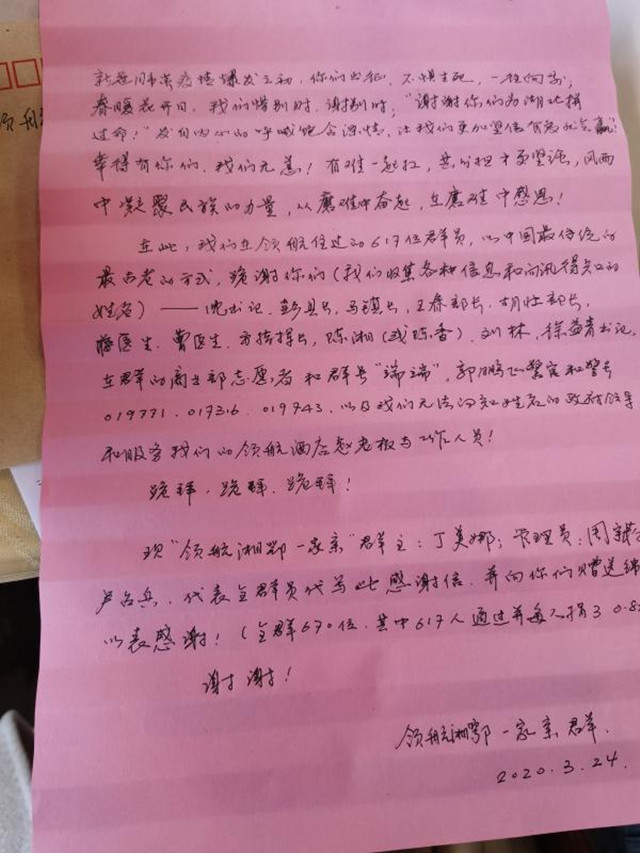 新冠肺炎疫情爆发之初，你们出征，不惧生死，一往向前；
春暖花开日，我们惜别时，谢别时，“谢谢你们为湖北拼
过命！”发自内心的呼喊饱含深情，让我们更加坚信有爱必会赢！
幸得有你们，我们无恙！有难一起扛，共分担才更坚强，风雨
中凝聚民族的力量，从磨难中奋起，在磨难中感恩！
在此，我们在领航住过的617位群员，以中国最传统的
最古老的方式，跪谢你们（我们收集各种信息和问讯得知的
姓名）——沈书记、彭县长、马镇长、王春部长、胡壮部长，
医生、曹医生、方指挥长，陈湘（或陈香）、刘林、徐益青书记，
在群的商业部志愿者和群号“端端”，郭鹏飞警官和警号
019771、017316、019743，以及我们无法得知姓名的政府领导
和服务我们的领航酒店老板与工作人员！
跪拜、跪拜、跪拜！
现“领航湘鄂一家亲”群主：丁美娜；管理员：周
卢占兵，代表全群员代写此感谢信，并向你们赠送锦
以表感谢！（全群670位，其中617人通过并每人捐3 0.8
谢谢！
领航湘鄂一家亲群
2020.3.24.
领航